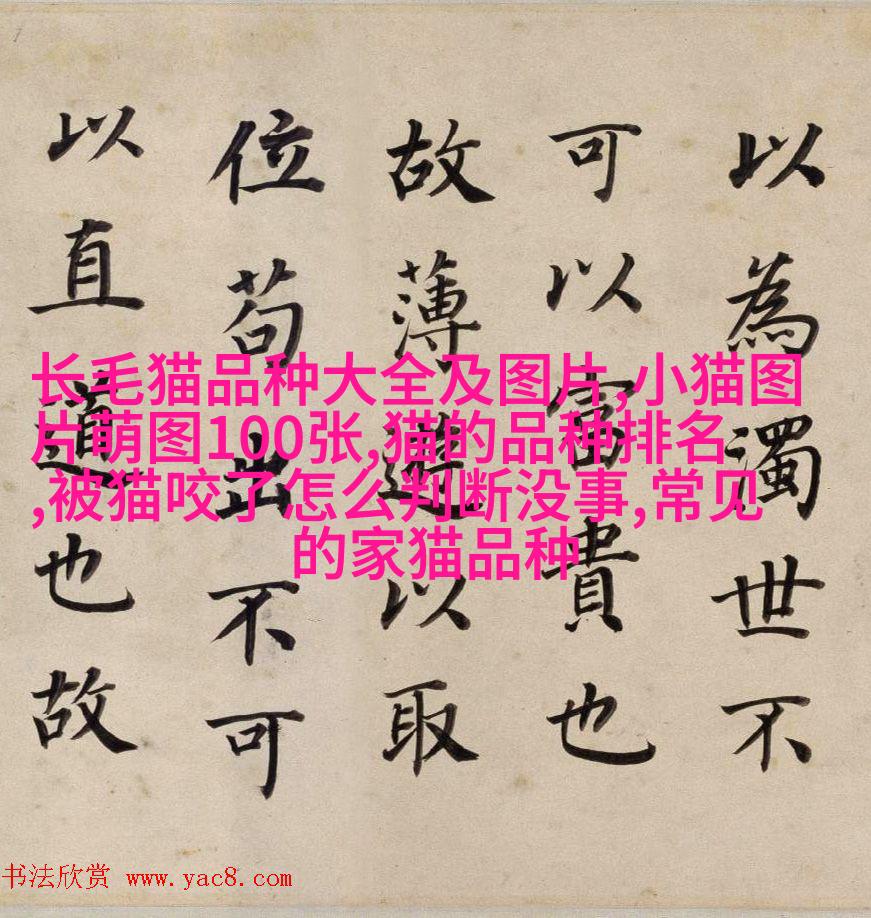 以為濁世不
可以富貴也
故薄遊以取
位苟出不可
以直道也故
长毛猫品种大全及图片,小猫图
片萌图100张,猫的品种排名
,被猫咬了怎么判断没事,常见
的家猫品种
书法欣赏 www.yac8.com